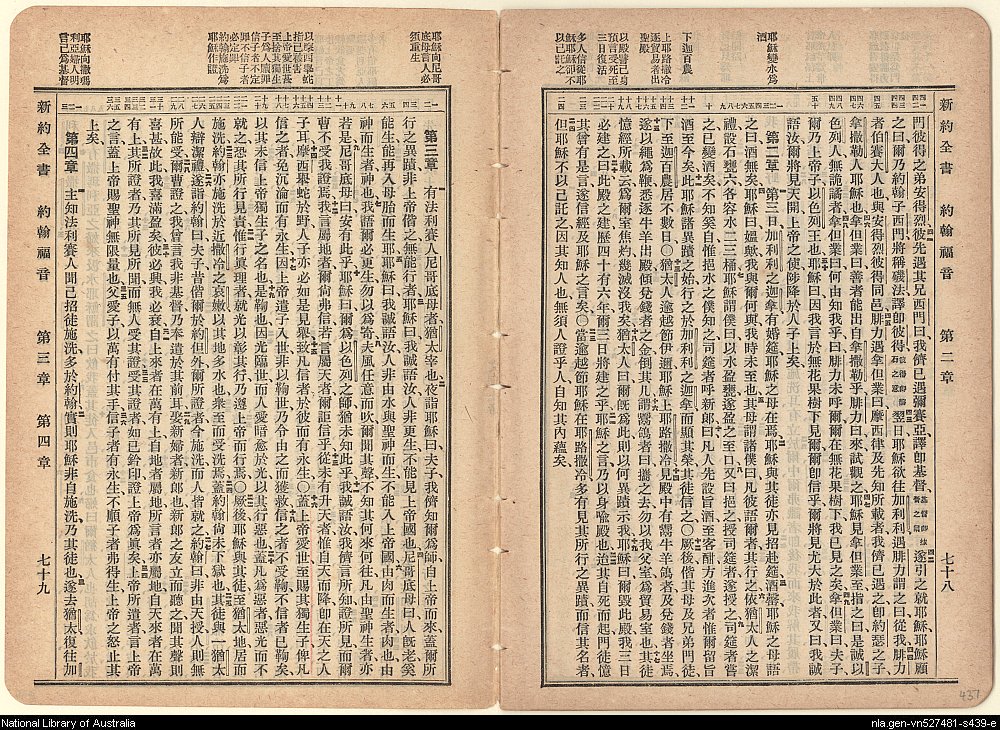 新約全書 約翰福音 第二章 七十八
耶穌變水爲酒
下迦百農
上耶路撒冷逐貿易者出聖殿
以殿譬己身預言受死至三日復活
多人信從耶穌耶穌卻不以己託之
門彼得之弟安得烈彼先遇其兄西門曰我儕已遇彌賽亞譯卽基督遂引之就耶穌耶穌顧
之曰爾乃約翰子西門將稱磯法譯卽彼得翌日耶穌欲往加利利遇腓力謂之曰從我腓力
者伯賽大人也與安得烈彼得同邑腓力遇拿但業曰摩西律及先知所載者我儕已遇之卽約瑟之子
拿撒勒人耶穌也拿但業曰善者能出自拿撒勒乎腓力曰來試觀之耶穌見拿但業至指之曰是誠以
色列人無詭譎者拿但業曰何由知我耶穌曰腓力未呼爾時爾在無花果樹下我已見之矣拿但業曰夫子
爾乃上帝子以色列王也耶穌曰因我言於無花果樹下見爾爾卽信乎爾將見尤大於此者又曰我誠
語汝爾將見天開上帝之使陟降於人子上矣
第二章 第三日加利利之迦拿有婚筵耶穌之母在焉耶穌與其徒亦見招赴筵酒罄耶穌之母語
耶穌曰酒無矣耶穌曰媼歟我與爾何與我時尚未至也其母謂諸僕曰凡彼語爾者其行之依猶太人之潔
禮設石甕六各容水二三桶耶穌謂僕曰以水盈甕遂盈之至口又曰挹之授司筵者遂授之司筵者嘗
之已變酒矣不知奚自惟挹水之僕知之司筵者呼新郎曰凡人先設旨酒至客酣方進次者惟爾留旨
酒至今矣此耶穌諸異蹟之始行之於加利利之迦拿而顯其榮其徒信之厥後偕其母及兄弟門徒
下至迦百農居不數日猶太人之逾越節伊邇耶穌上耶路撒冷見殿中有鬻牛羊鴿者及兌錢者坐焉
遂以繩爲鞭悉逐牛羊出殿傾兌錢者之金倒其几謂鬻鴿者曰攜之去勿以我父室爲貿易室也其徒
憶經所載云爲爾室焦灼幾滅沒我矣猶太人曰爾旣爲此則以何異蹟示我耶穌曰爾毀此殿我三日
必建之曰此殿之建歷四十有六年爾三日將建之乎耶穌之言乃以身喩殿也迨其自死而起門徒憶
其曾有是言遂信經及耶穌之言矣當逾越節耶穌在耶路撒冷多有見其所行之異蹟而信其名者
但耶穌不以己託之因其知人也無須人證乎人自知其內蘊矣
新約全書 約翰福音 第三章 第四章 七十九
耶穌向尼哥底母言人必須重生
以摩西擧蛇指已被害
上帝愛世甚至捨其獨生子爲人贖罪
信子者不定罪不信子者必定罪
約翰施洗爲耶穌作證
耶穌向撒瑪利亞婦人明言已爲基督
第三章 有法利賽人尼哥底母者猶太宰也夜詣耶穌曰夫子我儕知爾爲師自上帝而來蓋爾所
行之異蹟非上帝偕之無能行者耶穌曰我誠語汝人非更生不能見上帝國也尼哥底母曰人旣老奚
能生能再入母胎而生耶耶穌曰我誠語汝人非由水與聖神而生不能入上帝國由肉而生者肉也由
神而生者神也我語爾必更生勿以爲奇夫風任意而吹爾聞其聲不知其何來何往凡由聖神生者亦
若是尼哥底母曰安有此乎耶穌曰爾爲以色列之師猶未知此乎我誠語汝我儕言所知證所見而爾
曹不受我證焉我言屬地者爾尚弗信若言屬天者爾詎信乎從未有升天者惟自天而降卽在天之人
子耳摩西擧蛇於野人子亦必如是見擧致凡信者於彼而有永生蓋上帝愛世至賜其獨生子俾凡
信之者免沉淪而有永生因上帝遣子入世非以鞫世乃令由之而獲救信之者不受鞫不信者已鞫矣
以其未信上帝獨生子之名也是鞫也因光臨世而人愛暗愈於光以其行惡也蓋凡爲惡者惡光而不
就之恐其所行見責惟行眞理者就光以彰其行乃遵上帝而行焉厥後耶穌與其徒至猶太地居而
施洗約翰亦施洗於近撒冷之哀嫩以其地多水也衆至而受洗焉蓋約翰尚未下獄也其徒與一猶太
人辯潔禮遂詣約翰曰夫子昔偕爾於約但外爾所證者今施洗而人皆就之約翰曰非由天授人則無
所能受爾曹證之我曾言我非基督乃奉遣於其前耳娶新婦者新郎也新郎之友立而聽之聞其聲則
喜甚故此我喜滿盈矣彼必興與我必衰自上來者在萬有上自地者屬地所言者亦屬地自天來者在萬
有上其所證者乃其所見所聞而無人受其證受其證者如已鈐印證上帝爲眞矣上帝所遣者言上帝
之言蓋上帝賜聖神無限量也父愛子以萬有付其手信子者有永生不順子者弗得生上帝之怒止其
上矣
第四章 主知法利賽人聞己招徒施洗多於約翰實則耶穌非自施洗乃其徒也遂去猶太復往加
National Library of Australia
nla.gen-vn527481-s439-e
437